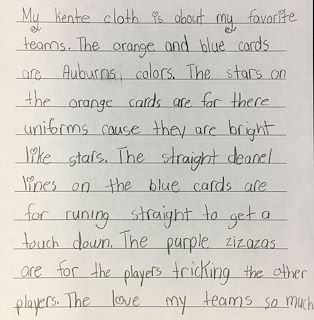 My kente cloth is about my favorite
teams. The orange and blue cards
are Auburns colors. The stars on
the orange cards are for there
uniforms cause they are bright
like stars. The straight deanel
lines on the blue cards are
for runing straight to get a
touch down. The purple zizazas
are for the players tricking the other
players. The love my teams so much